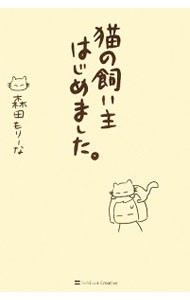 猫の飼い主
はじめました。
森田もりーな